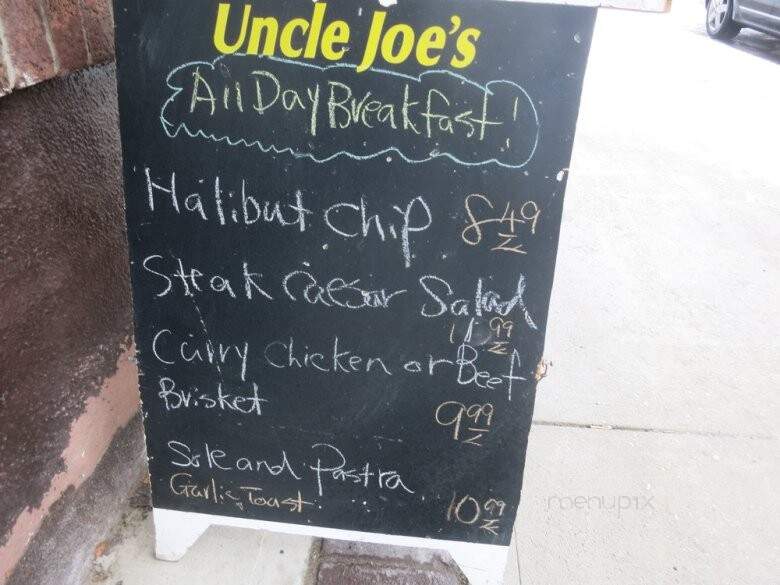 Uncle Joe's
All Day Breakfast!
Halibut Chip 8.49
Steak Caesar Salad
11.99
Curry Chicken or Beef
Brisket 9.99
Sole and Pastra
Garlic Toast 10.99
menupix